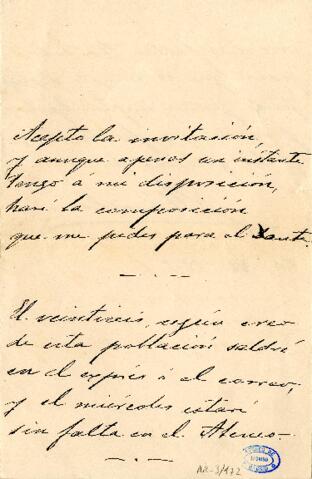 Acepto la invitación,
y aunque apenas un instante
tengo á mi disposición,
haré la composición
que me pides para el Dante.
El veintiseis, según creo
de esta población saldré
en el exprés ó el correo,
y el miércoles estaré
sin falta en el Ateneo.